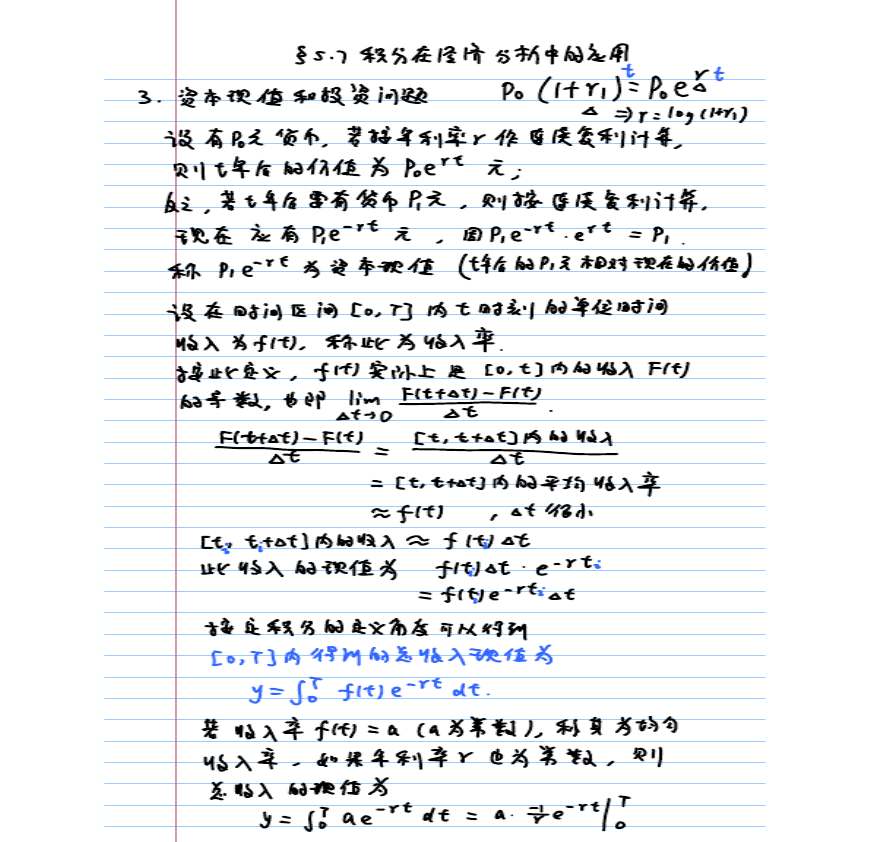 §5.7 积分在经济分析中的应用
3. 资本现值和投资问题 P₀(1+r₁)ᵗ = P₀e^{rt}
⇒ r = log(1+r₁)
设有P₀元货币, 若按年利率r作连续复利计算,
则t年后的价值为P₀e^{rt} 元;
反之, 若t年后要有货币P₁元, 则按连续复利计算,
现在应有P₁e^{-rt} 元, 因P₁e^{-rt}·e^{rt} = P₁.
称 P₁e^{-rt} 为资本现值 (t年后的P₁元相对现在的价值)
设在时间区间[0,T]内t时刻的单位时间
收入为f(t), 称此为收入率.
按此定义, f(t)实际上是[0,t]内的收入F(t)
的导数, 也即 lim_{Δt→0} (F(t+Δt)-F(t))/Δt .
(F(t+Δt)-F(t))/Δt = ([t,t+Δt]内的收入)/Δt
= [t,t+Δt]内的平均收入率
≈ f(t) , Δt很小
[tᵢ, tᵢ+Δt]内的收入 ≈ f(tᵢ)Δt
此收入的现值为 f(tᵢ)Δt·e^{-rtᵢ}
= f(tᵢ)e^{-rtᵢ}Δt
按定积分的定义角度可以得到
[0,T]内得到的总收入现值为
y = ∫₀ᵀ f(t)e^{-rt} dt.
若收入率f(t)=a (a为常数), 称其为均匀
收入率, 如果年利率r也为常数, 则
总收入的现值为
y = ∫₀ᵀ ae^{-rt} dt = a· (-1/r) e^{-rt}|₀ᵀ